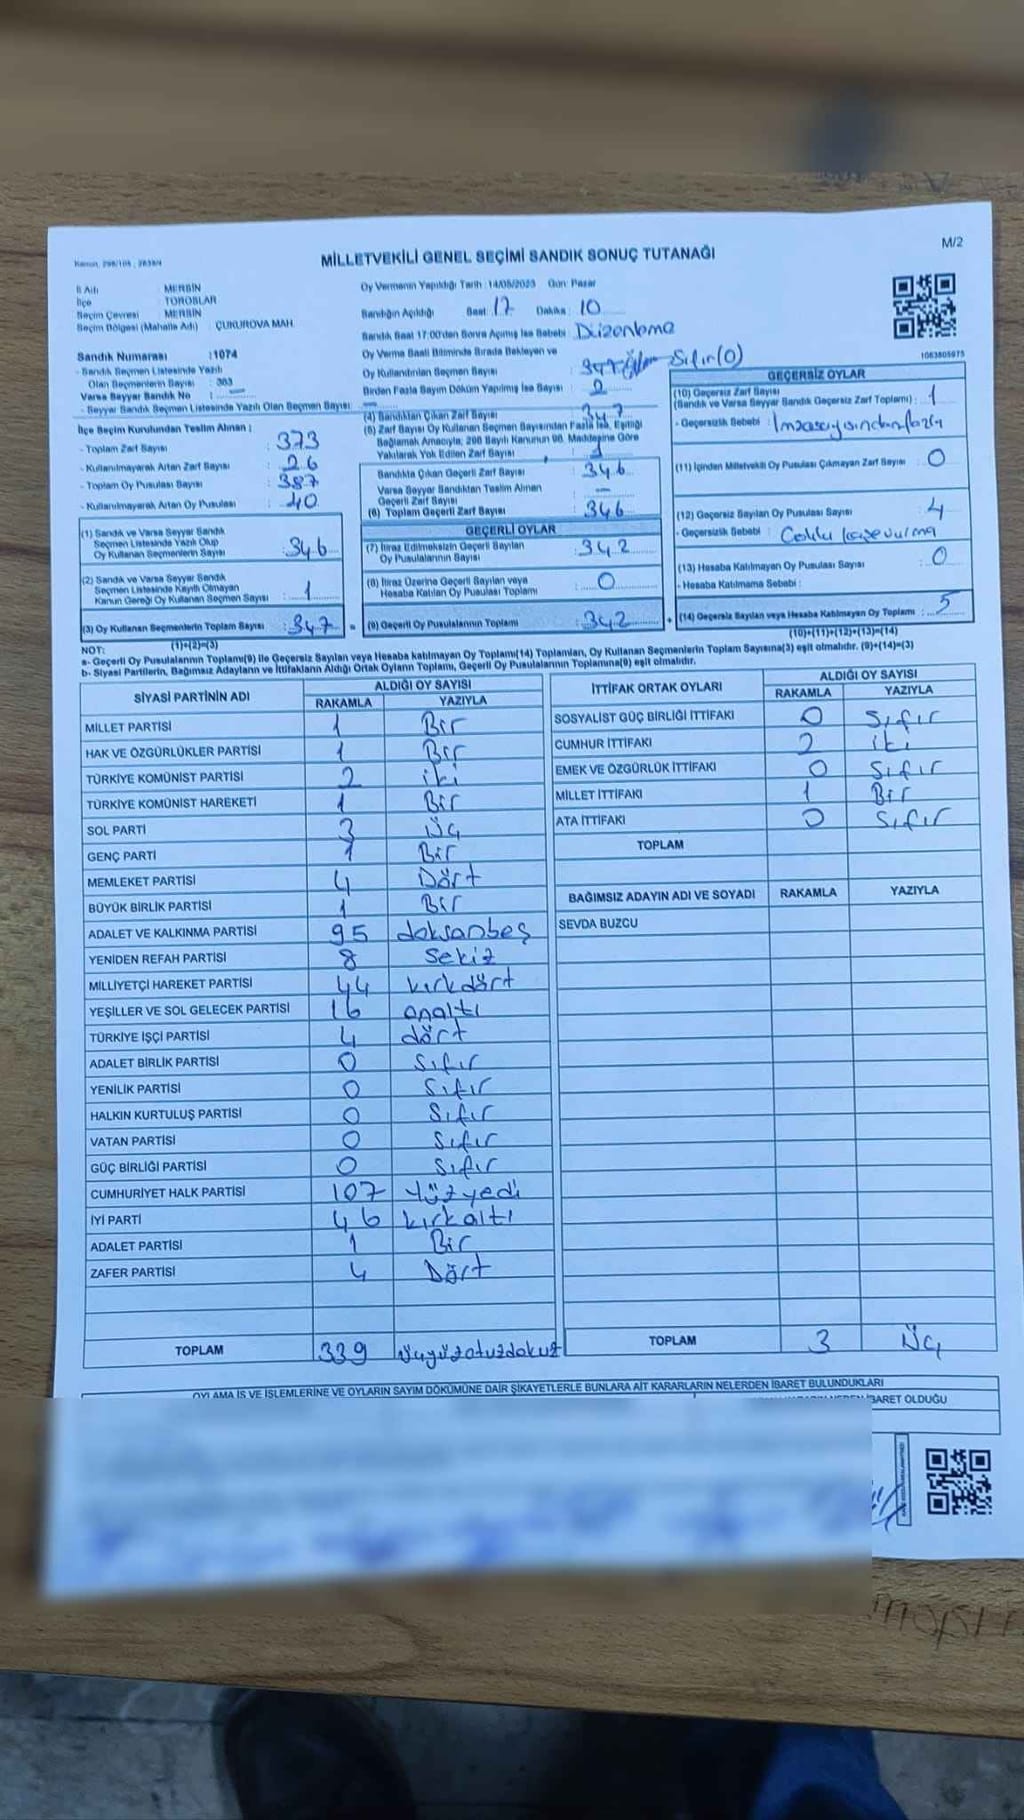 M/2
Kanun, 298/105, 2839/4
MİLLETVEKİLİ GENEL SEÇİMİ SANDIK SONUÇ TUTANAĞI
İl Adı : MERSİN
İlçe : TOROSLAR
Seçim Çevresi : MERSİN
Seçim Bölgesi (Mahalle Adı) : ÇUKUROVA MAH.
Sandık Numarası :1074
- Sandık Seçmen Listesinde Yazılı
Olan Seçmenlerin Sayısı : 383
Varsa Seyyar Sandık No :
- Seyyar Sandık Seçmen Listesinde Yazılı Olan Seçmen Sayısı:
İlçe Seçim Kurulundan Teslim Alınan :
- Toplam Zarf Sayısı : 373
- Kullanılmayarak Artan Zarf Sayısı : 26
- Toplam Oy Pusulası Sayısı : 387
- Kullanılmayarak Artan Oy Pusulası : 40
(1) Sandık ve Varsa Seyyar Sandık
Seçmen Listesinde Yazılı Olup
Oy Kullanan Seçmenlerin Sayısı : 346
(2) Sandık ve Varsa Seyyar Sandık
Seçmen Listesinde Kayıtlı Olmayan
Kanun Gereği Oy Kullanan Seçmen Sayısı : 1
(3) Oy Kullanan Seçmenlerin Toplam Sayısı : 347 =
(1)+(2)=(3)
Oy Vermenin Yapıldığı Tarih :14/05/2023 Gün: Pazar
Sandığın Açıldığı Saat : 17 Dakika : 10
Sandık Saat 17:00'den Sonra Açılmış İse Sebebi : Düzenleme
Oy Verme Saati Bitiminde Sırada Bekleyen ve
Oy Kullandırılan Seçmen Sayısı : Sıfır(0)
Birden Fazla Sayım Döküm Yapılmış İse Sayısı : 2
(4) Sandıktan Çıkan Zarf Sayısı : 347
(5) Zarf Sayısı Oy Kullanan Seçmen Sayısından Fazla İse, Eşitliği
Sağlamak Amacıyla, 298 Sayılı Kanunun 98. Maddesine Göre
Yakılarak Yok Edilen Zarf Sayısı
Sandıkta Çıkan Geçerli Zarf Sayısı : 346
Varsa Seyyar Sandıktan Teslim Alınan
Geçerli Zarf Sayısı : —
(6) Toplam Geçerli Zarf Sayısı : 346
GEÇERLİ OYLAR
(7) İtiraz Edilmeksizin Geçerli Sayılan
Oy Pusulalarının Sayısı : 342
(8) İtiraz Üzerine Geçerli Sayılan veya
Hesaba Katılan Oy Pusulası Toplamı : 0
(9) Geçerli Oy Pusulalarının Toplamı : 342 +
1083805975
GEÇERSİZ OYLAR
(10) Geçersiz Zarf Sayısı
(Sandık ve Varsa Seyyar Sandık Geçersiz Zarf Toplamı) : 1
- Geçersizlik Sebebi :
(11) İçinden Milletvekili Oy Pusulası Çıkmayan Zarf Sayısı : 0
(12) Geçersiz Sayılan Oy Pusulası Sayısı : 4
- Geçersizlik Sebebi :
(13) Hesaba Katılmayan Oy Pusulası Sayısı : 0
- Hesaba Katılmama Sebebi :
(14) Geçersiz Sayılan veya Hesaba Katılmayan Oy Toplamı : 5
(10)+(11)+(12)+(13)=(14)
NOT:
a- Geçerli Oy Pusulalarının Toplamı(9) ile Geçersiz Sayılan veya Hesaba katılmayan Oy Toplamı(14) Toplamları, Oy Kullanan Seçmenlerin Toplam Sayısına(3) eşit olmalıdır. (9)+(14)=(3)
b- Siyasi Partilerin, Bağımsız Adayların ve İttifakların Aldığı Ortak Oyların Toplamı, Geçerli Oy Pusulalarının Toplamına(9) eşit olmalıdır.
SİYASİ PARTİNİN ADI ALDIĞI OY SAYISI
RAKAMLA YAZIYLA
MİLLET PARTİSİ 1 Bir
HAK VE ÖZGÜRLÜKLER PARTİSİ 1 Bir
TÜRKİYE KOMÜNİST PARTİSİ 2 iki
TÜRKİYE KOMÜNİST HAREKETİ 1 Bir
SOL PARTİ 3 Üç
GENÇ PARTİ 1 Bir
MEMLEKET PARTİSİ 4 Dört
BÜYÜK BİRLİK PARTİSİ 1 Bir
ADALET VE KALKINMA PARTİSİ 95 doksanbeş
YENİDEN REFAH PARTİSİ 8 Sekiz
MİLLİYETÇİ HAREKET PARTİSİ 44 kırkdört
YEŞİLLER VE SOL GELECEK PARTİSİ 16 onaltı
TÜRKİYE İŞÇİ PARTİSİ 4 dört
ADALET BİRLİK PARTİSİ 0 Sıfır
YENİLİK PARTİSİ 0 Sıfır
HALKIN KURTULUŞ PARTİSİ 0 Sıfır
VATAN PARTİSİ 0 Sıfır
GÜÇ BİRLİĞİ PARTİSİ 0 Sıfır
CUMHURİYET HALK PARTİSİ 107 Yüzyedi
İYİ PARTİ 46 kırkaltı
ADALET PARTİSİ 1 Bir
ZAFER PARTİSİ 4 Dört
TOPLAM 339 üçyüzotuzdokuz
İTTİFAK ORTAK OYLARI ALDIĞI OY SAYISI
RAKAMLA YAZIYLA
SOSYALİST GÜÇ BİRLİĞİ İTTİFAKI 0 Sıfır
CUMHUR İTTİFAKI 2 iki
EMEK VE ÖZGÜRLÜK İTTİFAKI 0 Sıfır
MİLLET İTTİFAKI 1 Bir
ATA İTTİFAKI 0 Sıfır
TOPLAM
BAĞIMSIZ ADAYIN ADI VE SOYADI RAKAMLA YAZIYLA
SEVDA BUZCU
TOPLAM 3 Üç
OYLAMA İŞ VE İŞLEMLERİNE VE OYLARIN SAYIM DÖKÜMÜNE DAİR ŞİKAYETLERLE BUNLARA AİT KARARLARIN NELERDEN İBARET BULUNDUKLARI
İBARET OLDUĞU